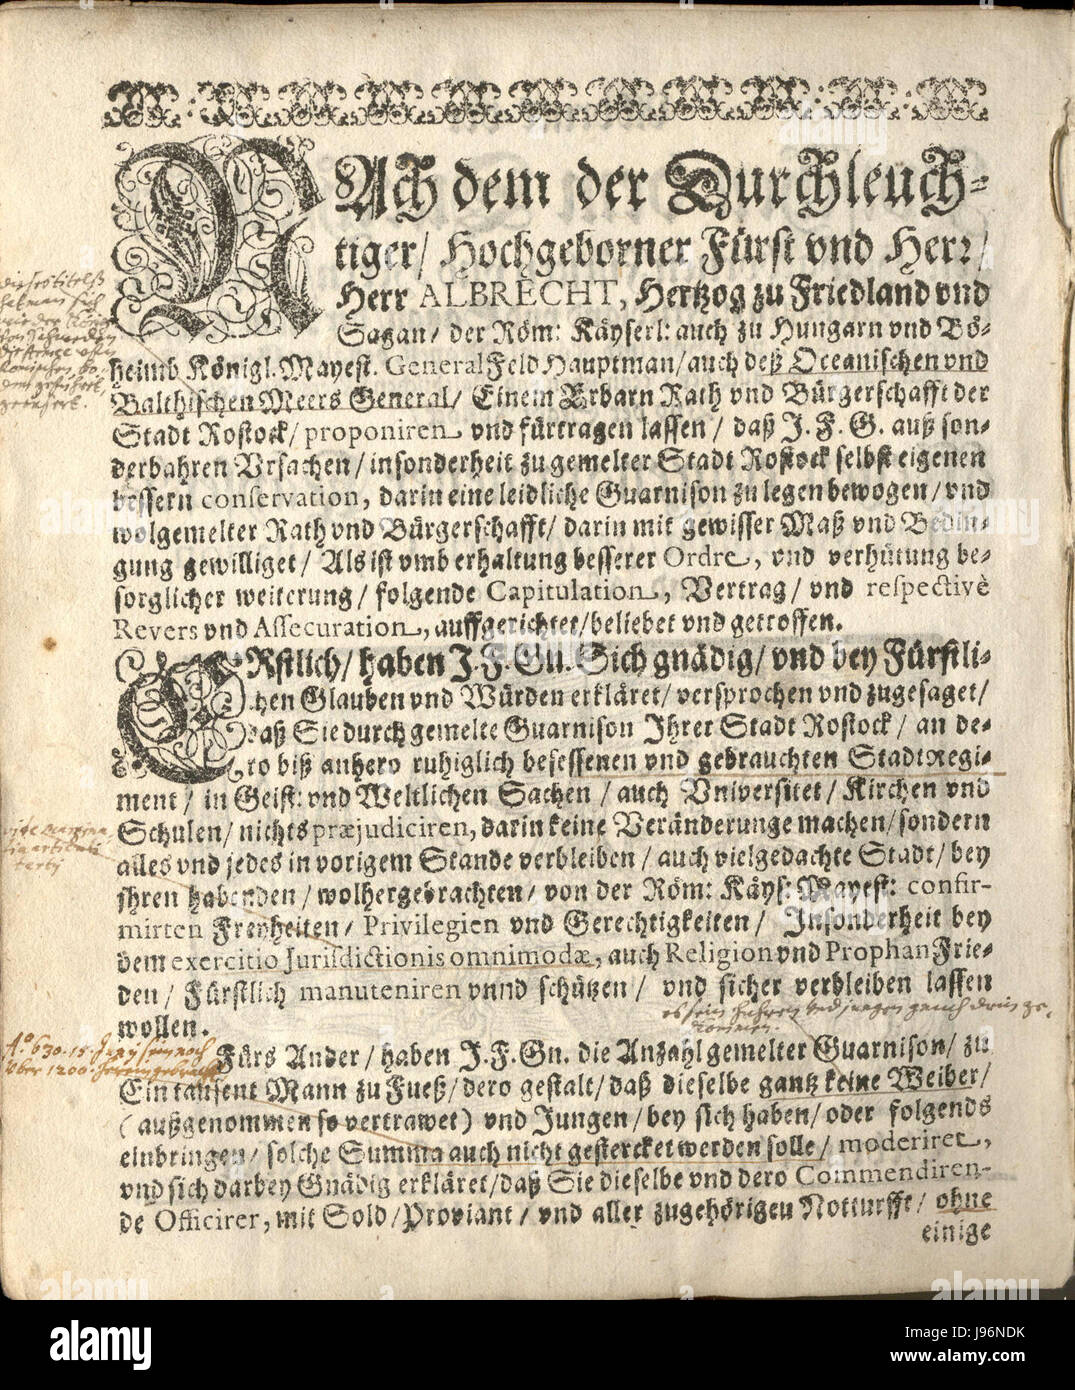 NAch dem der Durchleuch-
tiger/ Hochgeborner Fürst vnd Herr/
Herr ALBRECHT, Hertzog zu Friedland vnd
Sagan/ der Röm: Käyserl: auch zu Hungarn vnd Bö-
heimb Königl. Mayest. General Feld Hauptman/ auch deß Oceanischen vnd
Balthischen Meers General/ Einem Erbarn Rath vnd Bürgerschafft der
Stadt Rostock/ proponiren vnd fürtragen lassen/ daß J. F. G. auß son-
derbahren Vrsachen/ insonderheit zu gemelter Stadt Rostock selbst eigenen
bessern conservation, darin eine leidliche Guarnison zu legen bewogen/ vnd
wolgemelter Rath vnd Bürgerschafft/ darin mit gewisser Maß vnd Bedin-
gung gewilliget/ Als ist vmb erhaltung besserer Ordre, vnd verhütung be-
sorglicher weiterung/ folgende Capitulation, Vertrag/ vnd respectivè
Revers vnd Assecuration, auffgerichtet/ beliebet vnd getroffen.
ERstlich/ haben J. F. Gn. Sich gnädig/ vnd bey Fürstli-
chen Glauben vnd Würden erkläret/ versprochen vnd zugesaget/
Daß Sie durch gemelte Guarnison Ihrer Stadt Rostock/ an de-
ro biß anhero ruhiglich besessenen vnd gebrauchten StadtRegi-
ment/ in Geist: vnd Weltlichen Sachen/ auch Vniversitet/ Kirchen vnd
Schulen/ nichts præjudiciren, darin keine Veränderunge machen/ sondern
alles vnd jedes in vorigem Stande verbleiben/ auch vielgedachte Stadt/ bey
ihren habenden/ wolhergebrachten/ von der Röm: Käys: Mayest: confir-
mirten Freyheiten/ Privilegien vnd Gerechtigkeiten/ Insonderheit bey
dem exercitio Jurisdictionis omnimodæ, auch Religion vnd Prophan Frie-
den/ Fürstlich manuteniren vnnd schützen/ vnd sicher verbleiben lassen
wollen.
Fürs Ander/ haben J. F. Gn. die Anzahl gemelter Guarnison/ zu
Ein tausent Mann zu Fueß/ dero gestalt/ daß dieselbe gantz keine Weiber/
(außgenommen so vertrawet) vnd Jungen/ bey sich haben/ oder folgends
einbringen/ solche Summa auch nicht gestercket werden solle/ moderiret,
vnd sich darbey Gnädig erkläret/ daß Sie dieselbe vnd dero Commendiren-
de Officirer, mit Sold/ Proviant/ vnd aller zugehörigen Notturfft/ ohne
einige
alamy
J96NDK
www.alamy.com